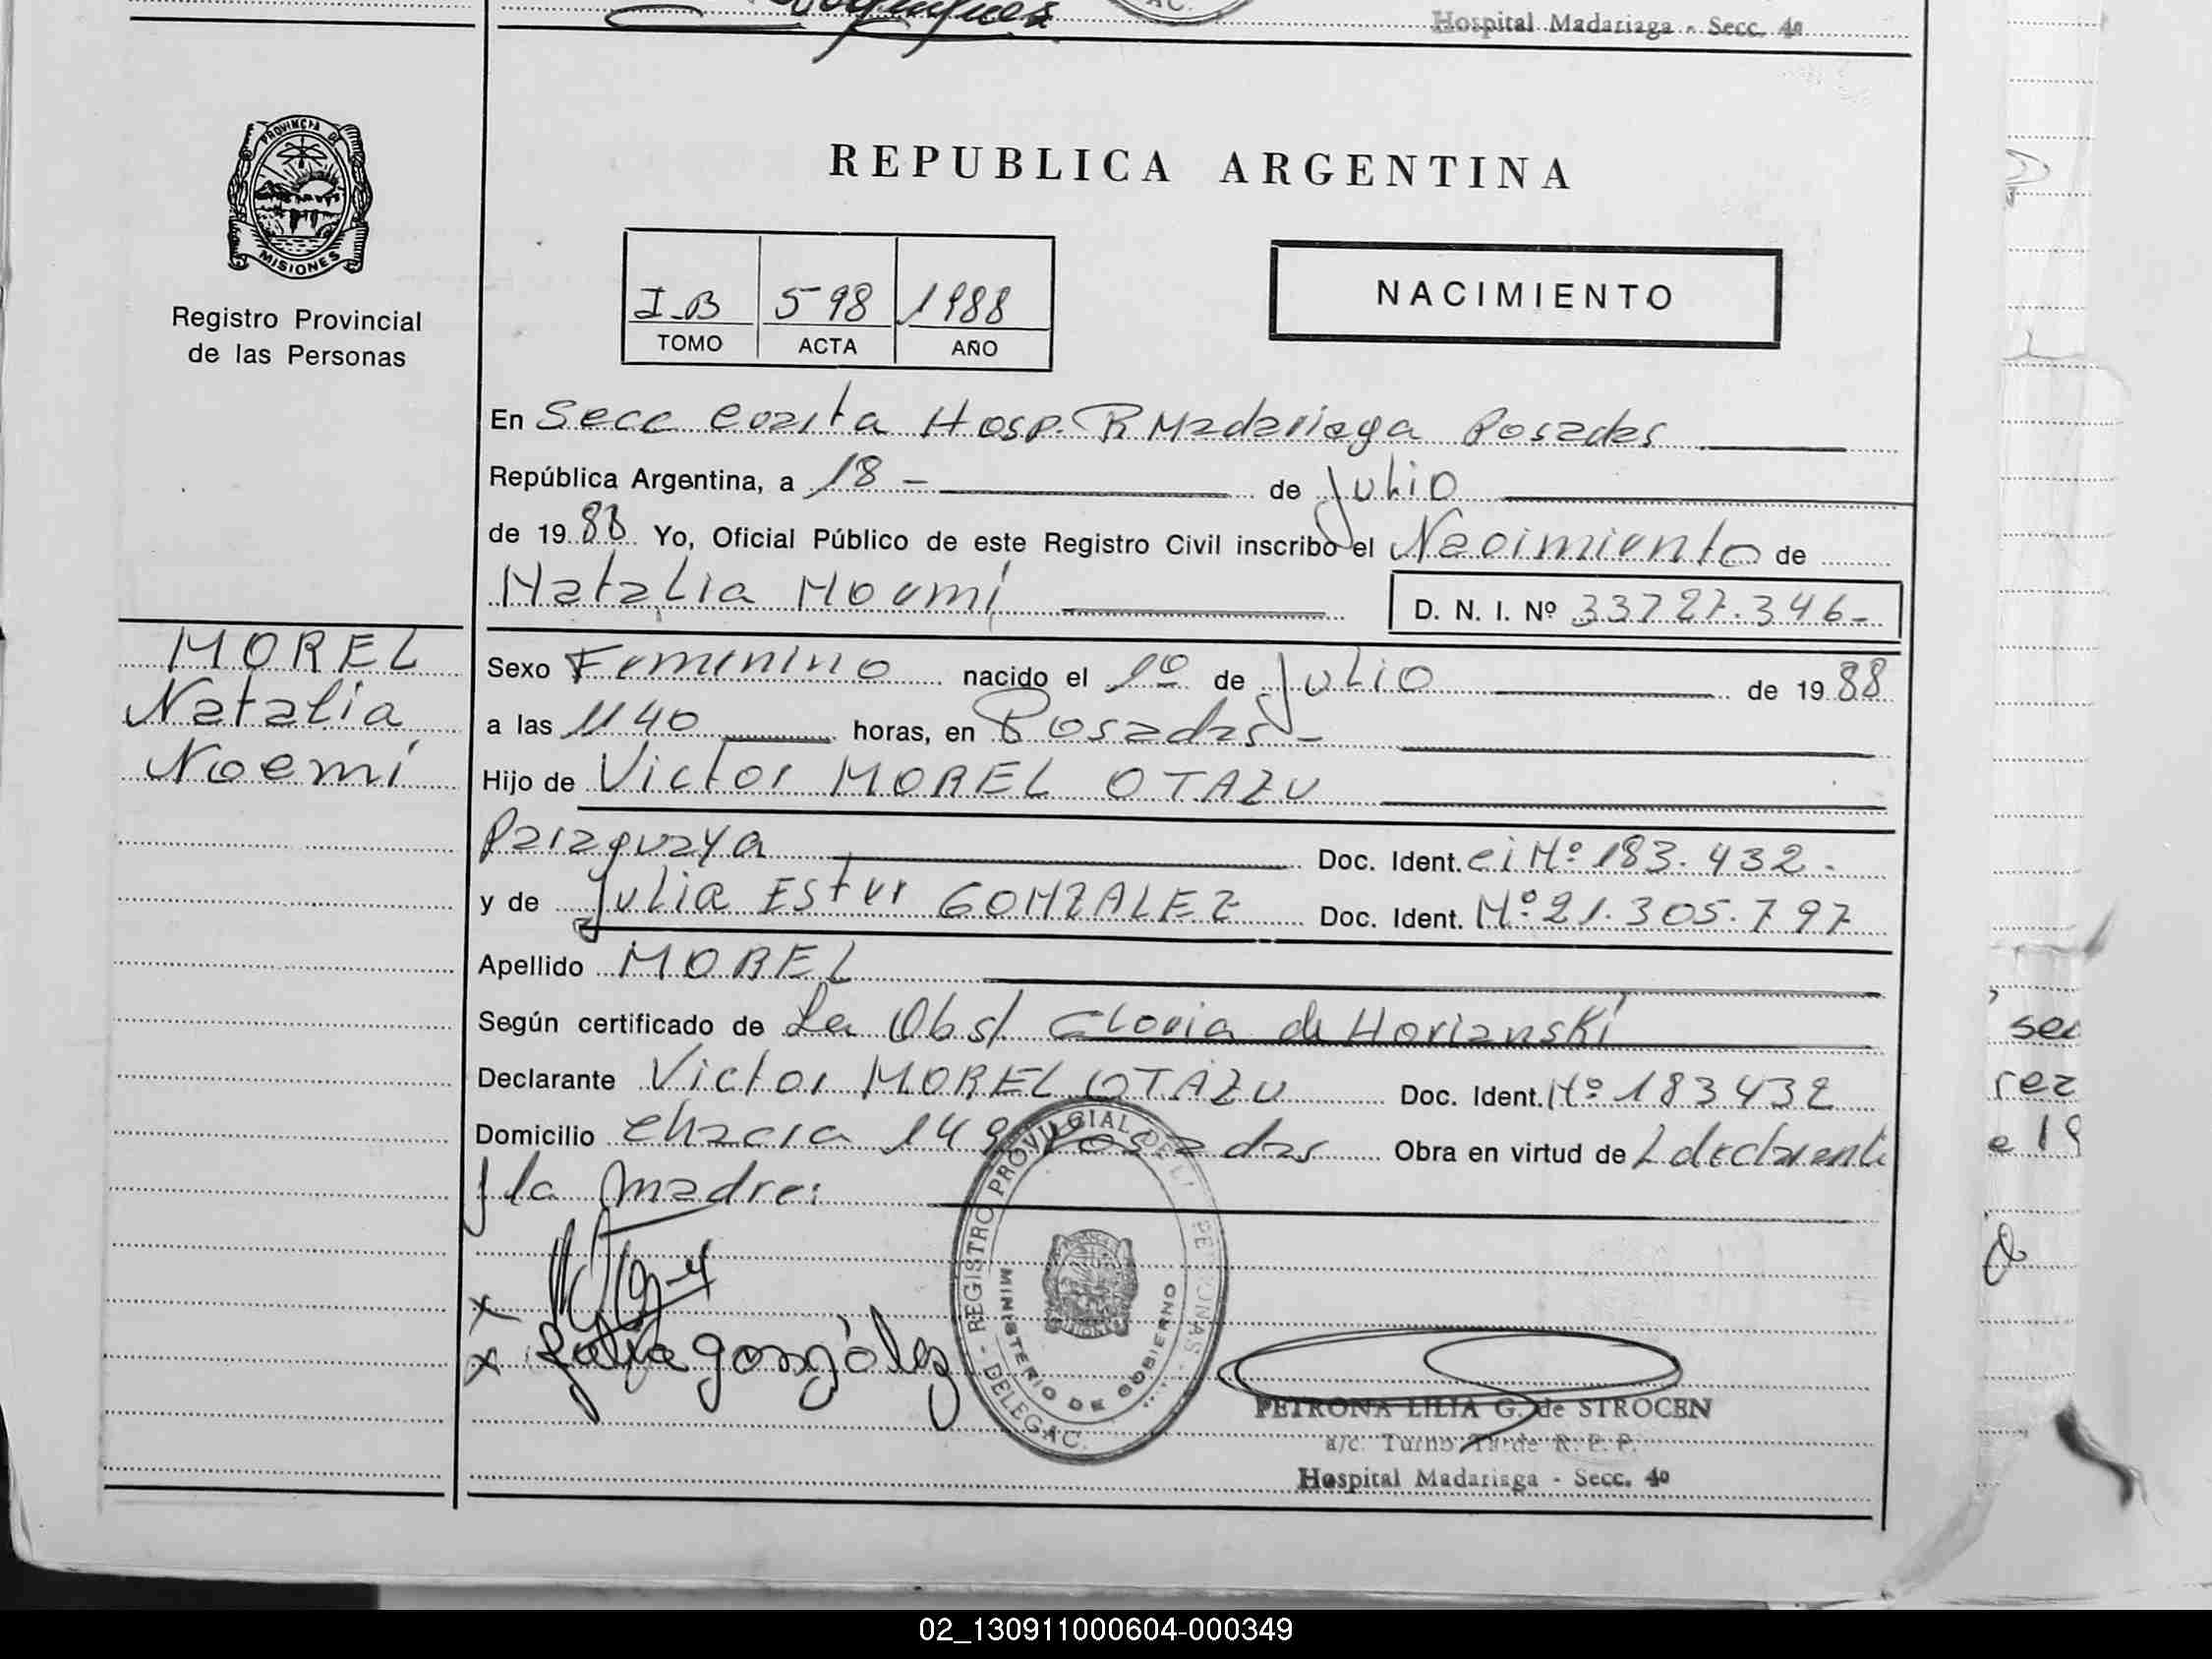 Hospital Madariaga - Secc. 4ª
PROVINCIA DE
MISIONES
Registro Provincial
de las Personas
REPUBLICA ARGENTINA
I-B 598 1988
TOMO ACTA AÑO
NACIMIENTO
En Secc cuarta Hosp. R Madariaga Posadas
República Argentina, a 18 - de Julio
de 1988 Yo, Oficial Público de este Registro Civil inscribo el Nacimiento de
Natalia Noemí D. N. I. Nº 33727.346-
MOREL
Natalia
Noemí
Sexo Femenino nacido el 1º de Julio de 1988
a las 1140 horas, en Posadas -
Hijo de Victor MOREL OTAZU
Paraguaya Doc. Ident. ci Nº 183.432.
y de Julia Ester GONZALEZ Doc. Ident. Nº 21.305.797
Apellido MOREL
Según certificado de La Obst. Gloria de Horianski
Declarante Victor MOREL OTAZU Doc. Ident. Nº 183432
Domicilio Chacra 149 Posadas Obra en virtud de L declarante
y la madre:
x
x Julia gonzález
REGISTRO PROVINCIAL DE LAS PERSONAS - DELEGAC.
MINISTERIO DE GOBIERNO
PETRONA LILIA G. de STROCEN
a/c. Turno Tarde R. P. P.
Hospital Madariaga - Secc. 4ª
02_130911000604-000349